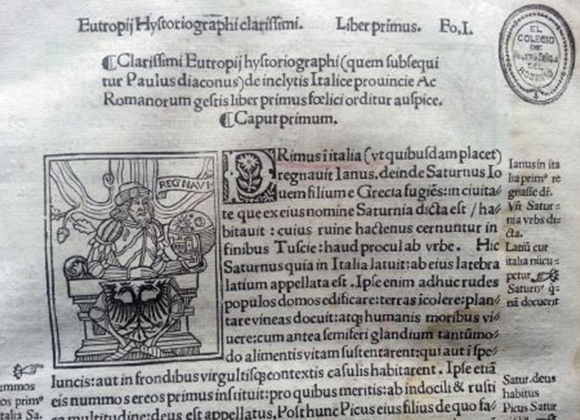 Eutropij Hystoriographi clarissimi. Liber primus. Fo. I.
EL
COLEGIO
DE
DEL
ROSARIO
⁋Clarissimi Eutropij hystoriographi (quem subsequi
tur Paulus diaconus) de inclytis Italice prouincie Ac
Romanorum gestis liber primus fœlici orditur auspice.
⁋Caput primum.
REGNAVI
PRimus i italia (vt quibusdam placet)
regnauit Ianus. deinde Saturnus Io
uem filium e Grecia fugiēs: in ciuita/
te que ex eius nomine Saturnia dicta est / ha/
bitauit : cuius ruine hactenus cernuntur in
finibus Tuscie: haud procul ab vrbe. Hic
Saturnus quia in Italia latuit: ab eius latebra
latium appellata est. Ipse enim adhuc rudes
populos domos edificare: terras icolere: plan/
tare vineas docuit: atq; humanis moribus vi/
uere: cum antea semiferi glandium tantūmo/
do alimentis vitam sustentarent: qui aut i spe/
luncis: aut in frondibus virgultisq; contextis casulis habitarent. Ipse etiā
eis nummos ereos primus instituit: pro quibus meritis: ab indocili & rusti
ca multitudine: deus est appellatus. Post hunc Picus eius filius de quo fa/
Ianus in ita
lia primꝰ re
gnasse dr̄.
Vñ Satur=
nia vrbs di=
cta.
Latiū cur
italia nūcu=
petur
Saturnꝰ q=
docuerit
Satur. deus
habitus
Picus Satur
ummos
os primꝰ
italia Sa.